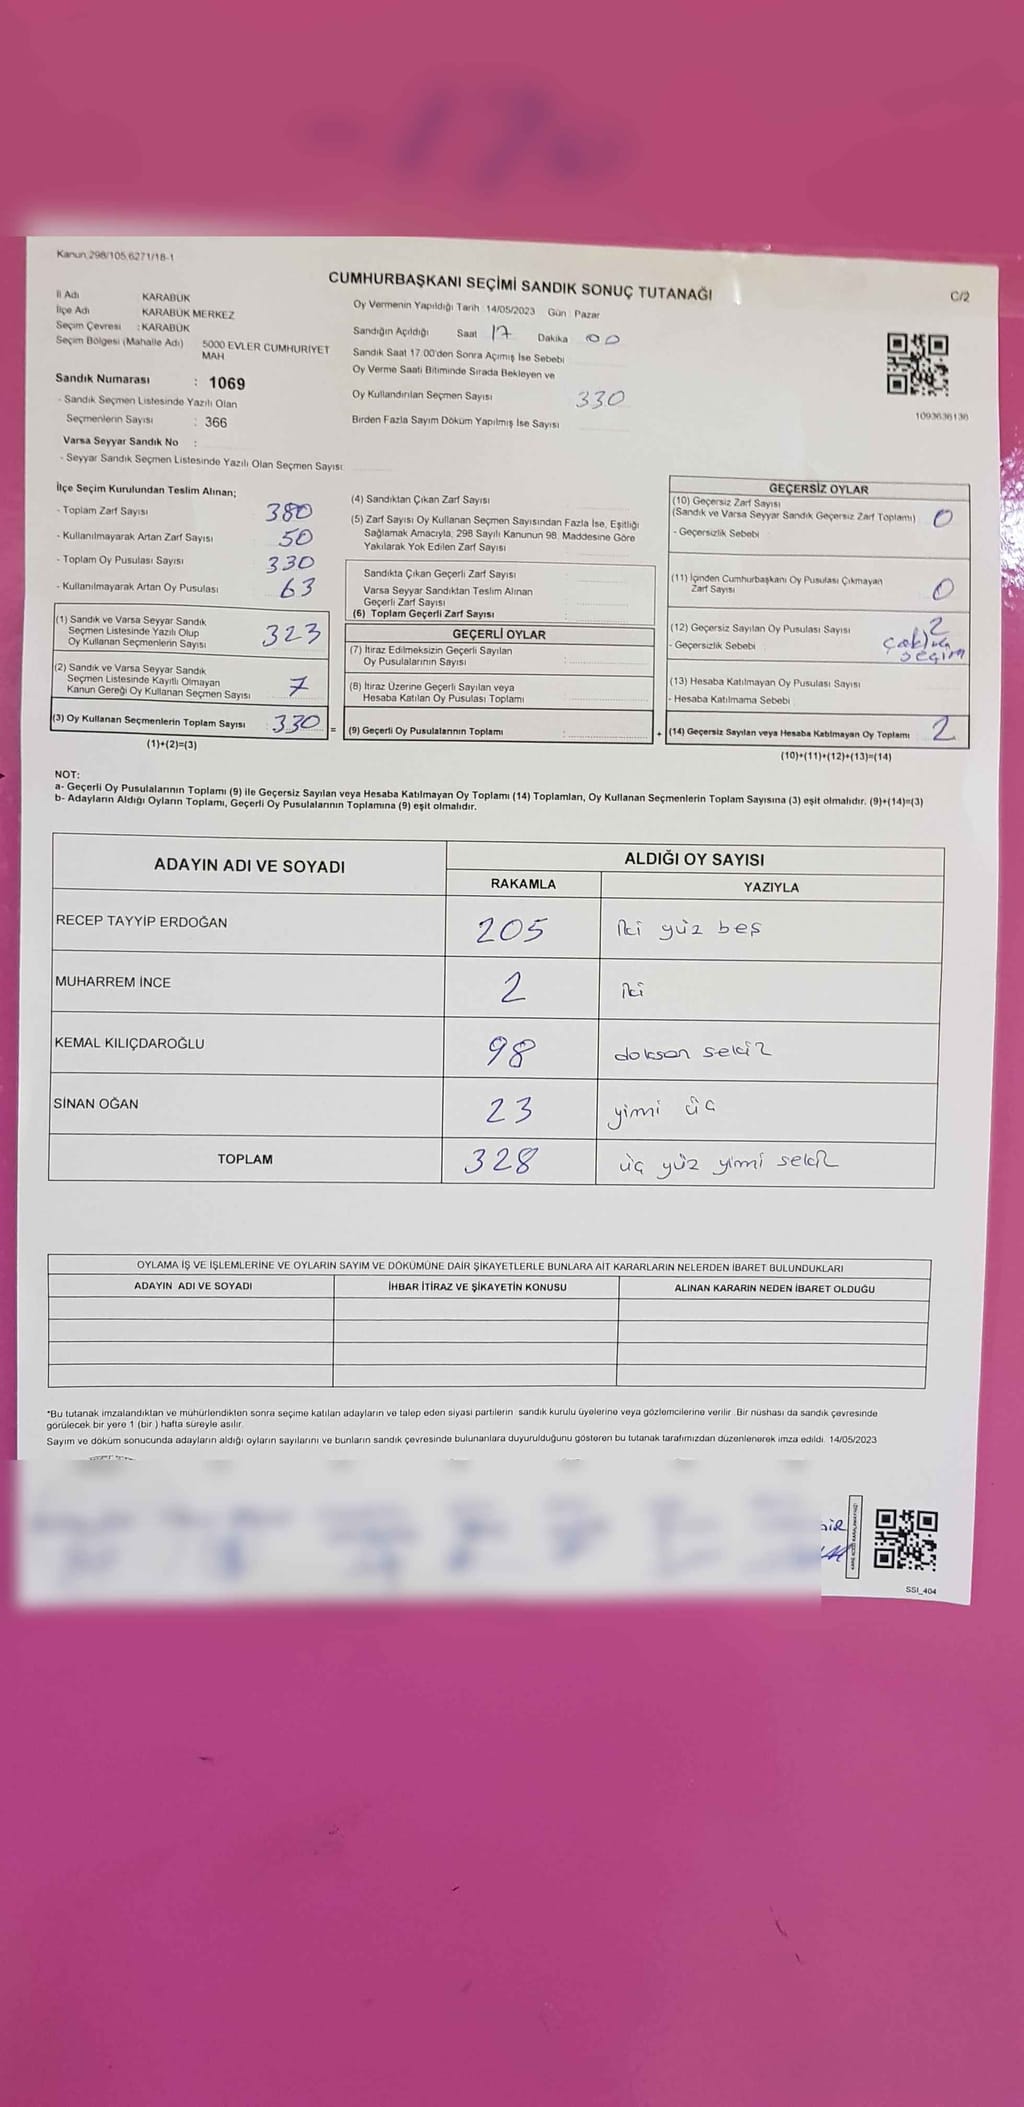 Kanun;298/105,6271/18-1
CUMHURBAŞKANI SEÇİMİ SANDIK SONUÇ TUTANAĞI
C/2
İl Adı KARABÜK
İlçe Adı KARABÜK MERKEZ
Seçim Çevresi : KARABÜK
Seçim Bölgesi (Mahalle Adı) 5000 EVLER CUMHURİYET
MAH
Sandık Numarası : 1069
- Sandık Seçmen Listesinde Yazılı Olan
Seçmenlerin Sayısı : 366
Varsa Seyyar Sandık No :
- Seyyar Sandık Seçmen Listesinde Yazılı Olan Seçmen Sayısı:
Oy Vermenin Yapıldığı Tarih : 14/05/2023 Gün : Pazar
Sandığın Açıldığı Saat 17 Dakika 00
Sandık Saat 17.00'den Sonra Açımış İse Sebebi
Oy Verme Saati Bitiminde Sırada Bekleyen ve
Oy Kullandırılan Seçmen Sayısı 330
Birden Fazla Sayım Döküm Yapılmış İse Sayısı
1093636136
İlçe Seçim Kurulundan Teslim Alınan;
- Toplam Zarf Sayısı 380
- Kullanılmayarak Artan Zarf Sayısı 50
- Toplam Oy Pusulası Sayısı 330
- Kullanılmayarak Artan Oy Pusulası 63
(1) Sandık ve Varsa Seyyar Sandık
Seçmen Listesinde Yazılı Olup
Oy Kullanan Seçmenlerin Sayısı 323
(2) Sandık ve Varsa Seyyar Sandık
Seçmen Listesinde Kayıtlı Olmayan
Kanun Gereği Oy Kullanan Seçmen Sayısı 7
(3) Oy Kullanan Seçmenlerin Toplam Sayısı : 330 =
(1)+(2)=(3)
(4) Sandıktan Çıkan Zarf Sayısı
(5) Zarf Sayısı Oy Kullanan Seçmen Sayısından Fazla İse, Eşitliği
Sağlamak Amacıyla, 298 Sayılı Kanunun 98. Maddesine Göre
Yakılarak Yok Edilen Zarf Sayısı
Sandıkta Çıkan Geçerli Zarf Sayısı
Varsa Seyyar Sandıktan Teslim Alınan
Geçerli Zarf Sayısı
(6) Toplam Geçerli Zarf Sayısı
GEÇERLİ OYLAR
(7) İtiraz Edilmeksizin Geçerli Sayılan
Oy Pusulalarının Sayısı
(8) İtiraz Üzerine Geçerli Sayılan veya
Hesaba Katılan Oy Pusulası Toplamı
(9) Geçerli Oy Pusulalarının Toplamı : +
GEÇERSİZ OYLAR
(10) Geçersiz Zarf Sayısı
(Sandık ve Varsa Seyyar Sandık Geçersiz Zarf Toplamı) 0
- Geçersizlik Sebebi
(11) İçinden Cumhurbaşkanı Oy Pusulası Çıkmayan
Zarf Sayısı 0
(12) Geçersiz Sayılan Oy Pusulası Sayısı 2
- Geçersizlik Sebebi
seçim
(13) Hesaba Katılmayan Oy Pusulası Sayısı
- Hesaba Katılmama Sebebi
(14) Geçersiz Sayılan veya Hesaba Katılmayan Oy Toplamı 2
(10)+(11)+(12)+(13)=(14)
NOT:
a- Geçerli Oy Pusulalarının Toplamı (9) ile Geçersiz Sayılan veya Hesaba Katılmayan Oy Toplamı (14) Toplamları, Oy Kullanan Seçmenlerin Toplam Sayısına (3) eşit olmalıdır. (9)+(14)=(3)
b- Adayların Aldığı Oyların Toplamı, Geçerli Oy Pusulalarının Toplamına (9) eşit olmalıdır.
ADAYIN ADI VE SOYADI ALDIĞI OY SAYISI
RAKAMLA YAZIYLA
RECEP TAYYİP ERDOĞAN 205 iki yüz beş
MUHARREM İNCE 2 iki
KEMAL KILIÇDAROĞLU 98 doksan sekiz
SİNAN OĞAN 23 yirmi üç
TOPLAM 328 üç yüz yirmi sekiz
OYLAMA İŞ VE İŞLEMLERİNE VE OYLARIN SAYIM VE DÖKÜMÜNE DAİR ŞİKAYETLERLE BUNLARA AİT KARARLARIN NELERDEN İBARET BULUNDUKLARI
ADAYIN ADI VE SOYADI İHBAR İTİRAZ VE ŞİKAYETİN KONUSU ALINAN KARARIN NEDEN İBARET OLDUĞU
*Bu tutanak imzalandıktan ve mühürlendikten sonra seçime katılan adayların ve talep eden siyasi partilerin sandık kurulu üyelerine veya gözlemcilerine verilir. Bir nüshası da sandık çevresinde
görülecek bir yere 1 (bir ) hafta süreyle asılır.
Sayım ve döküm sonucunda adayların aldığı oyların sayılarını ve bunların sandık çevresinde bulunanlara duyurulduğunu gösteren bu tutanak tarafımızdan düzenlenerek imza edildi. 14/05/2023
SSI_404